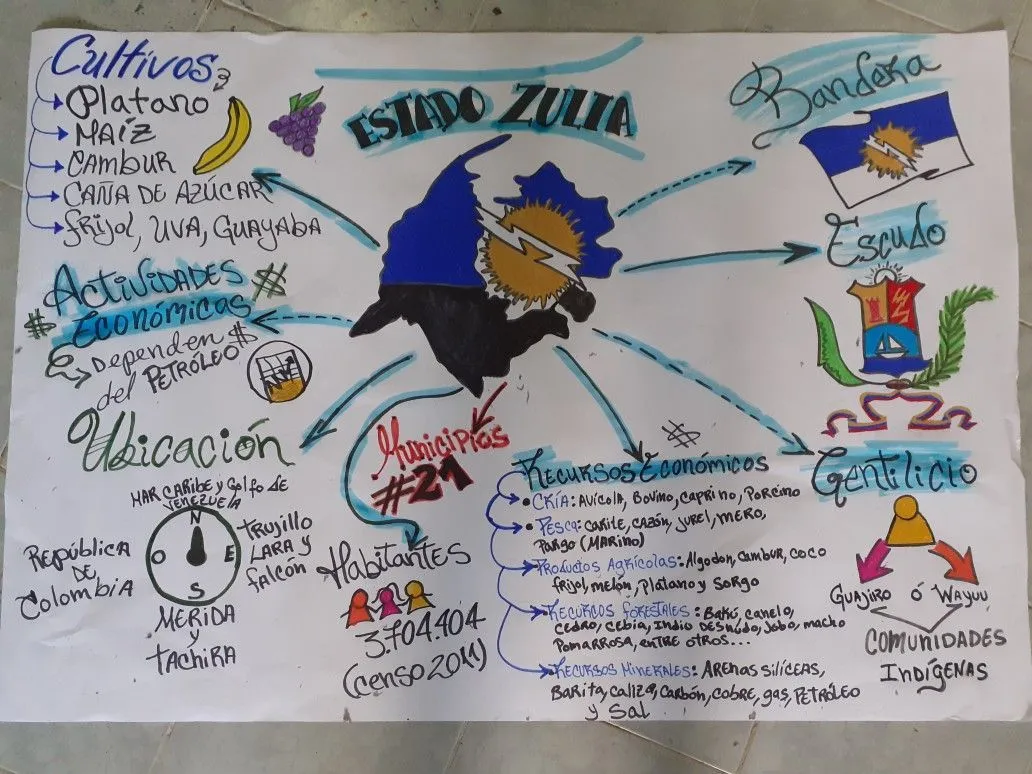 ESTADO ZULIA
Cultivos
Platano
MAÍZ
CAMBUR
CAÑA DE AZÚCAR
frijol, UVA, GUAYABA
Bandera
Escudo
Actividades
Económicas
Dependen
del PETRÓLEO
Ubicación
MAR CARIBE y Golfo de
VENEZUELA
N
República
DE
Colombia
O
E
Trujillo
LARA y
falcón
S
MERIDA
y
TACHIRA
Municipios
#21
Habitantes
3.704.404
(censo 2011)
RECURSOS Económicos
CRÍA: AVÍCOLA, BOVINO, CAPRINO, PORCINO
PESCA: CARITE, CAZÓN, JUREL, MERO,
PARGO (MARINO)
PRODUCTOS AGRÍCOLAS: Algodon, cambur, coco
frijol, melón, Platano y Sorgo
RECURCOS FORESTALES: BAKÚ, canelo,
CEDRO, CEBIA, INDIO DESNUDO, Jobo, macho
Pomarrosa, ENTRE OTROS...
RECURSOS MINERALES: ARENAS SILÍCEAS,
Barita, caliza, Carbón, cobre, gas, PETRÓLEO
y Sal
Gentilicio
GUAJIRO ó WAYUU
COMUNIDADES
INDÍGENAS